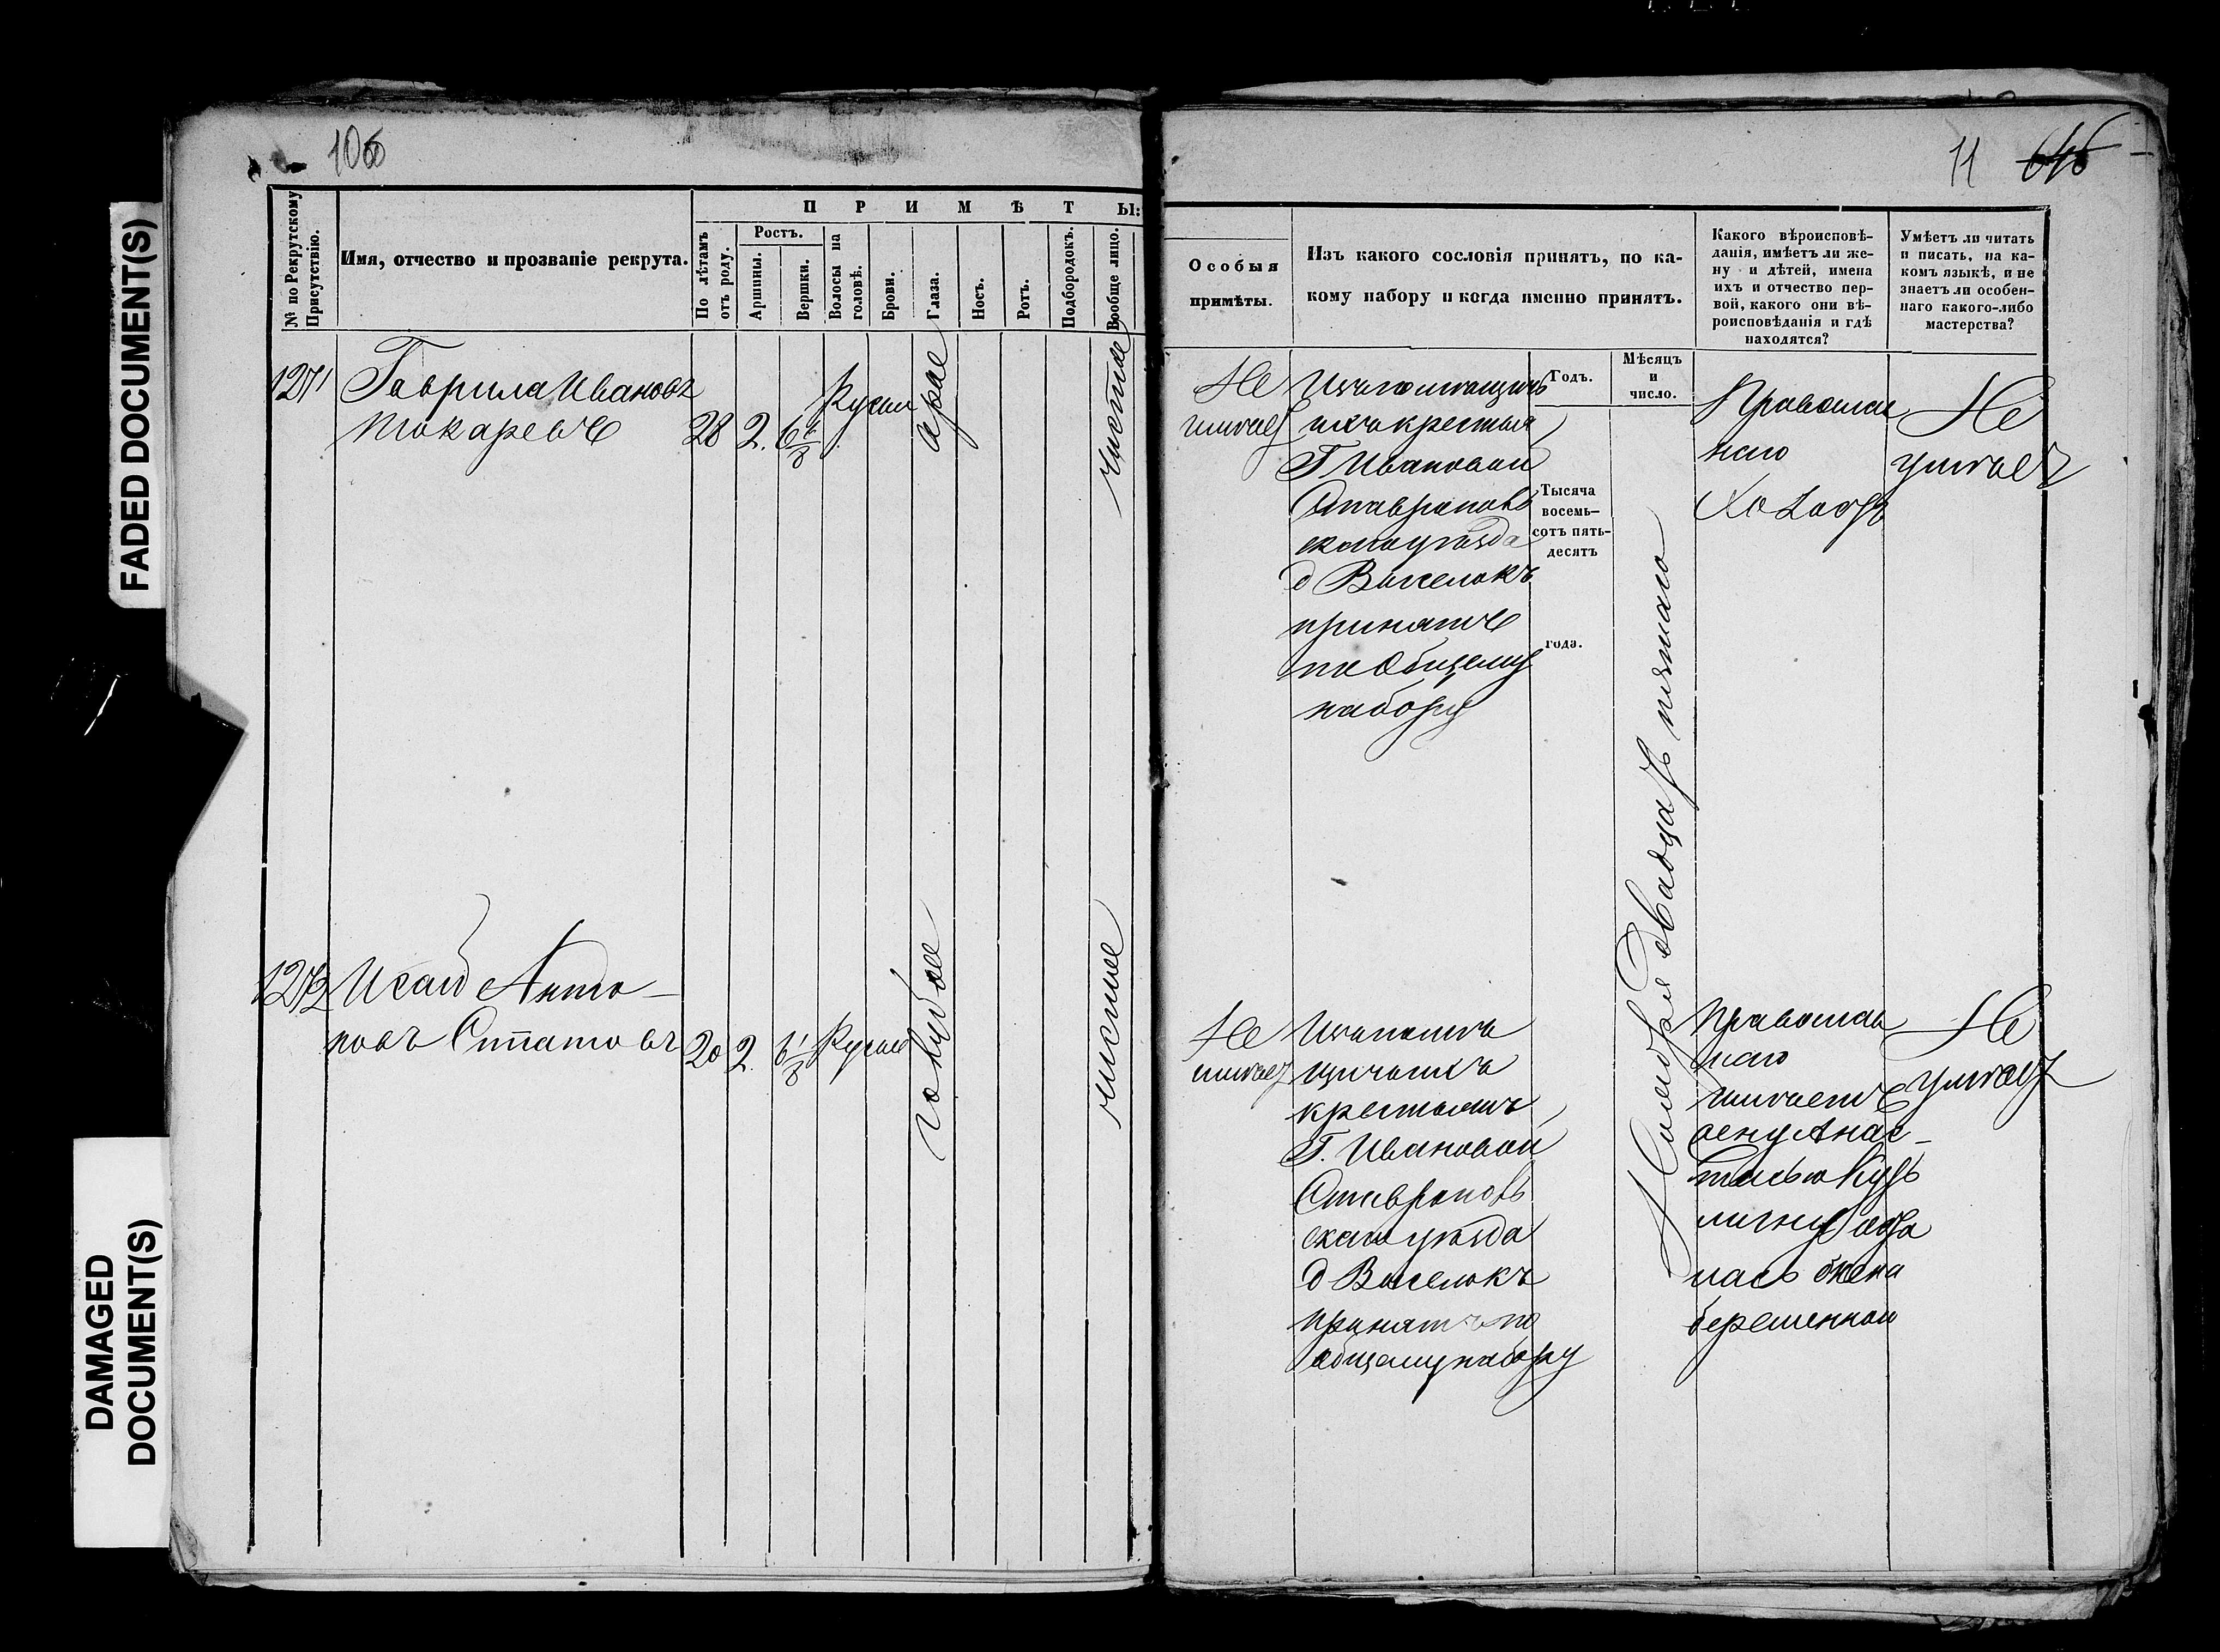 FADED DOCUMENT(S)
DAMAGED
DOCUMENT(S)
10об
№ по Рекрутскому
Присутствію.
Имя, отчество и прозваніе рекрута.
П Р И М Ѣ Т Ы:
По лѣтамъ
отъ роду.
Ростъ.
Аршины.
Вершки.
Волосы на
головѣ.
Брови.
Глаза.
Носъ.
Ротъ.
Подбородокъ.
Вообще лицо.
1271
Гаврила Ивановъ
Токаревъ
28
2.
Русыя
чистое
1272
Исай Анто-
новъ
20
2.
6 1/8
Русые
голубые
чистое
11
Особыя
примѣты.
Изъ какого сословія принятъ, по ка-
кому набору и когда именно принятъ.
Какого вѣроисповѣ-
данія, имѣетъ ли же-
ну и дѣтей, имена
ихъ и отчество пер-
вой, какого они вѣ-
роисповѣданія и гдѣ
находятся?
Умѣетъ ли читать
и писать, на ка-
комъ языкѣ, и не
знаетъ ли особен-
наго какого-либо
мастерства?
Годъ.
Мѣсяцъ
и
число.
Не
имѣетъ
Изъ помѣщичь
ихъ крестьян
Г Ивановой
Ставрополь
скаго уѣзда
д Выселокъ
принятъ
по общему
набору
Тысяча
восемь-
сотъ пять-
десятъ
года.
Ноября двадцать пятаго
Православ
наго
Холостъ
Не
умѣетъ
Не
имѣетъ
Изъ помѣ
щичьихъ
крестьянъ
Г. Ивановой
Ставрополь
скаго уѣзда
д Выселокъ
принятъ по
общему набору
Православ
наго
имѣетъ
жену Анас-
тасью Кузь
мину оста
лась жена
беременной
Не
умѣетъ